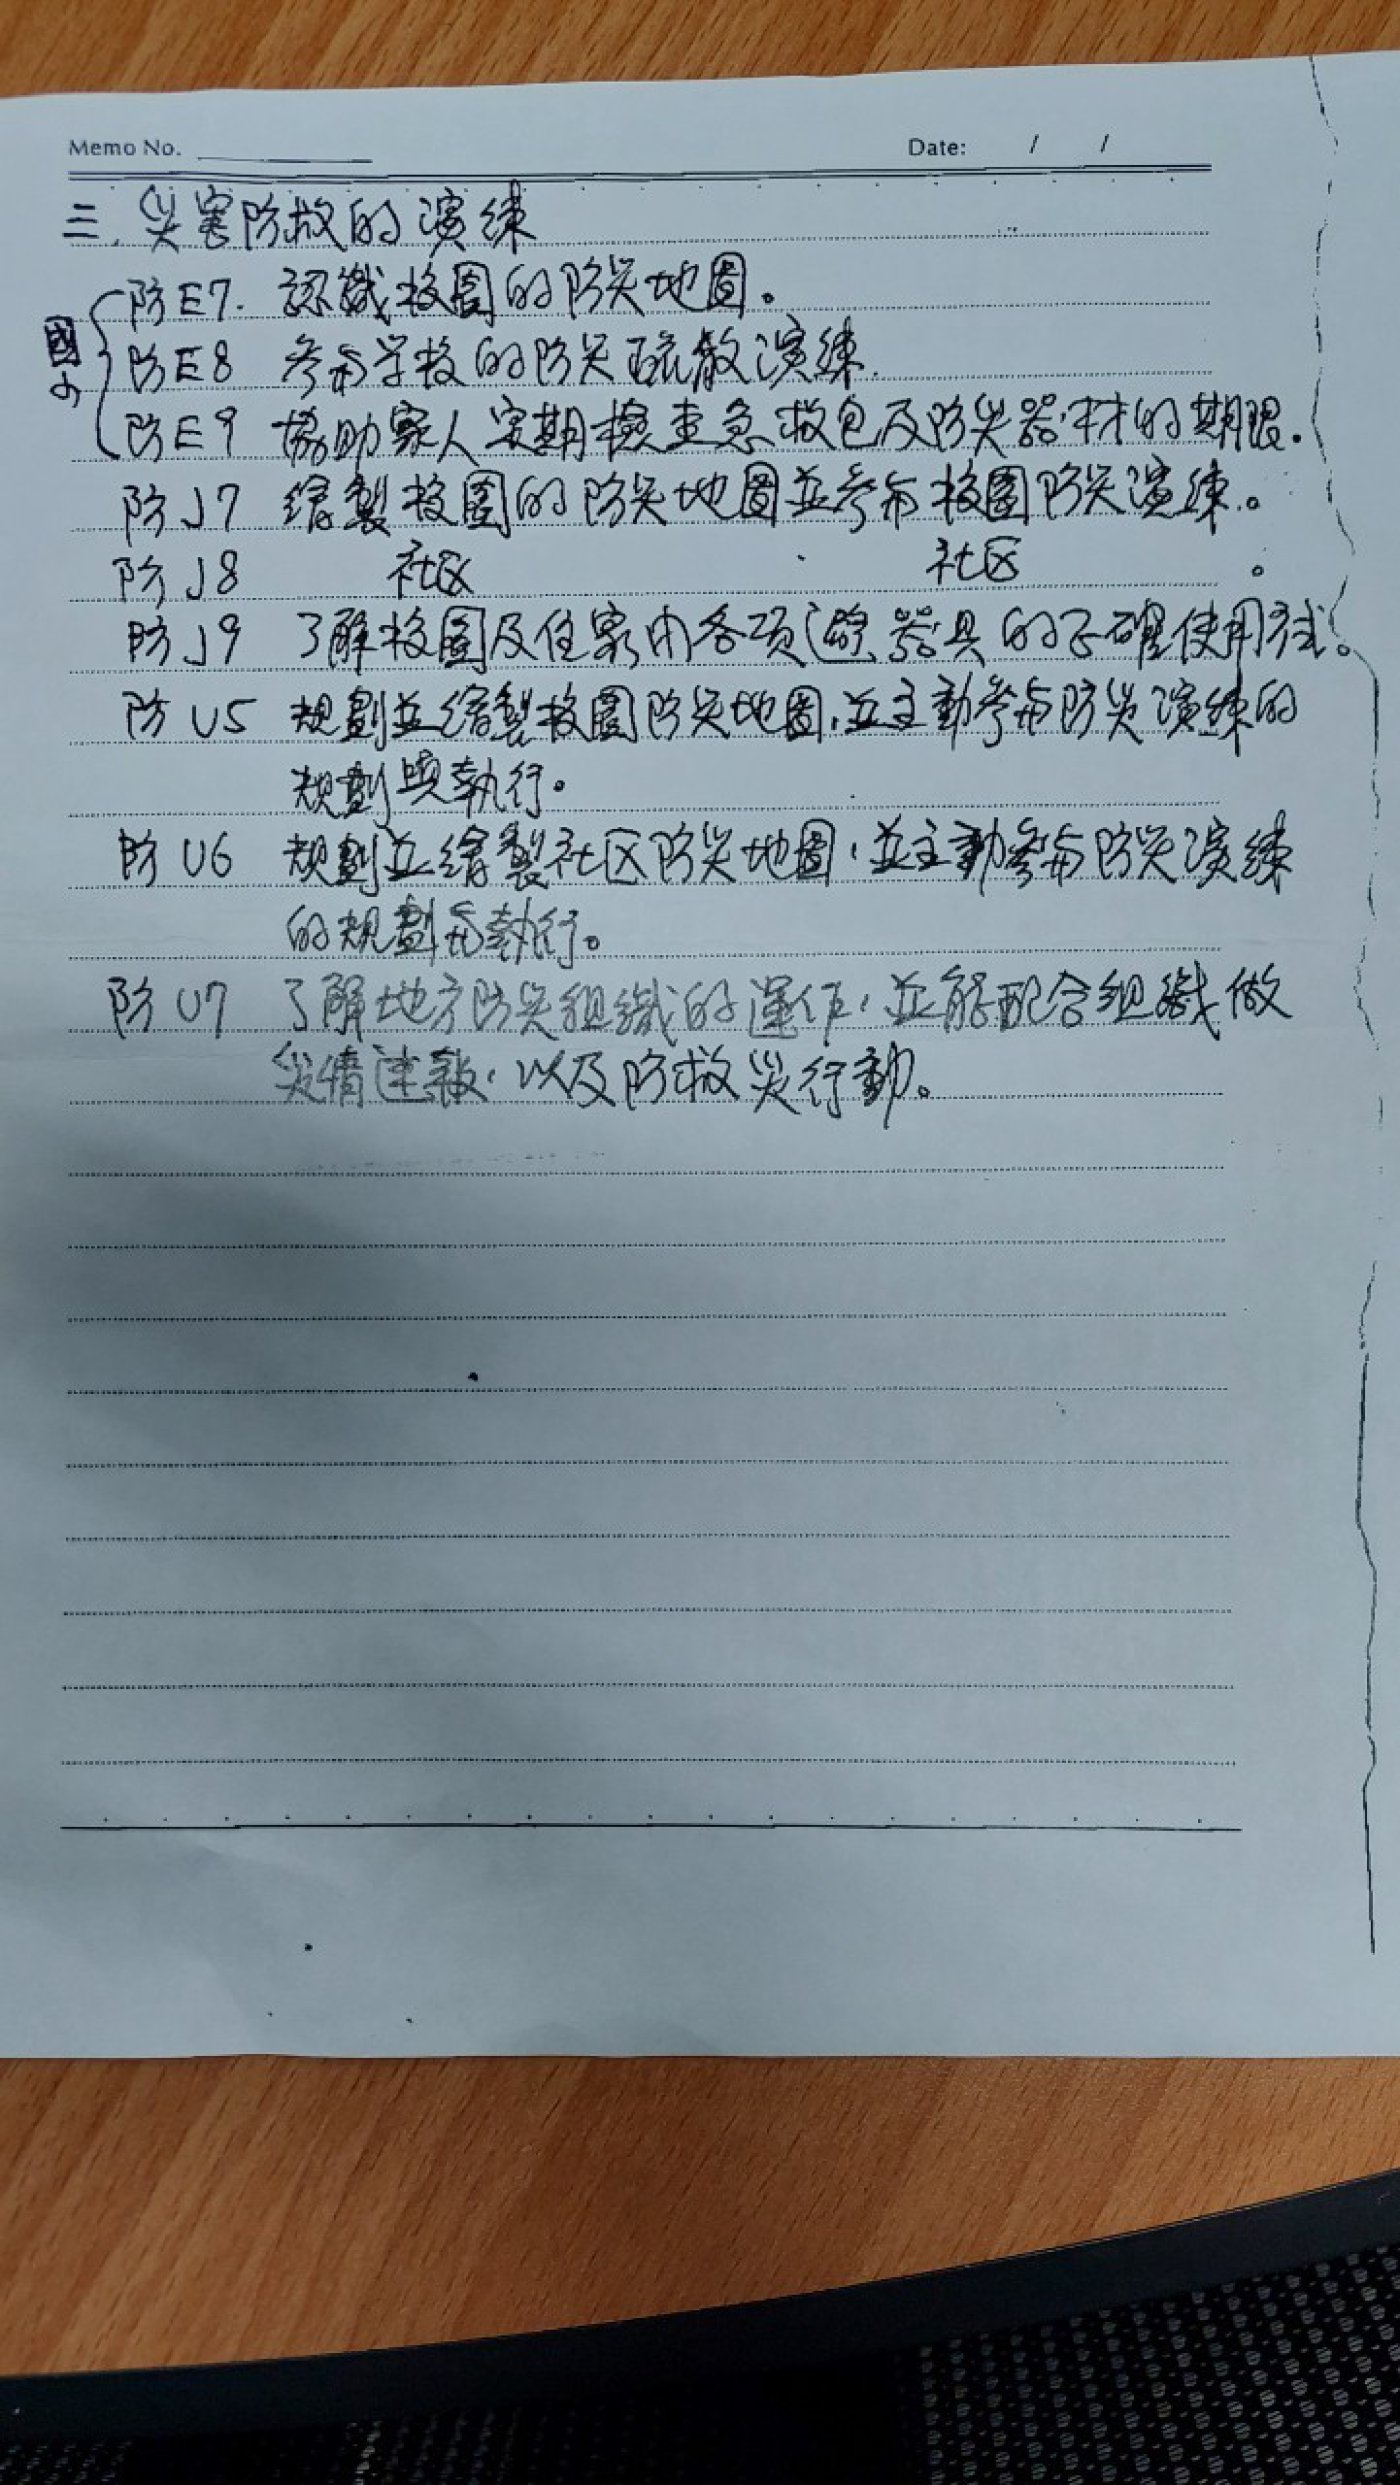 Memo No. Date: / /
三、災害防救的演練
國小
防E7. 認識校園的防災地圖。
防E8 參与学校的防災疏散演練.
防E9 協助家人定期檢查急救包及防災器材的期限.
防J7 繪製校園的防災地圖並參与校園防災演練。
防J8 社区 社区 。
防J9 了解校園及住家內各項避難器具的正確使用方式。
防U5 規劃並繪製校園防災地圖,並主動參与防災演練的
規劃與執行。
防U6 規劃並繪製社区防災地圖,並主動參与防災演練
的規劃与執行。
防U7 了解地方防災組織的運作,並能配合組織做
災情速報,以及防救災行動。